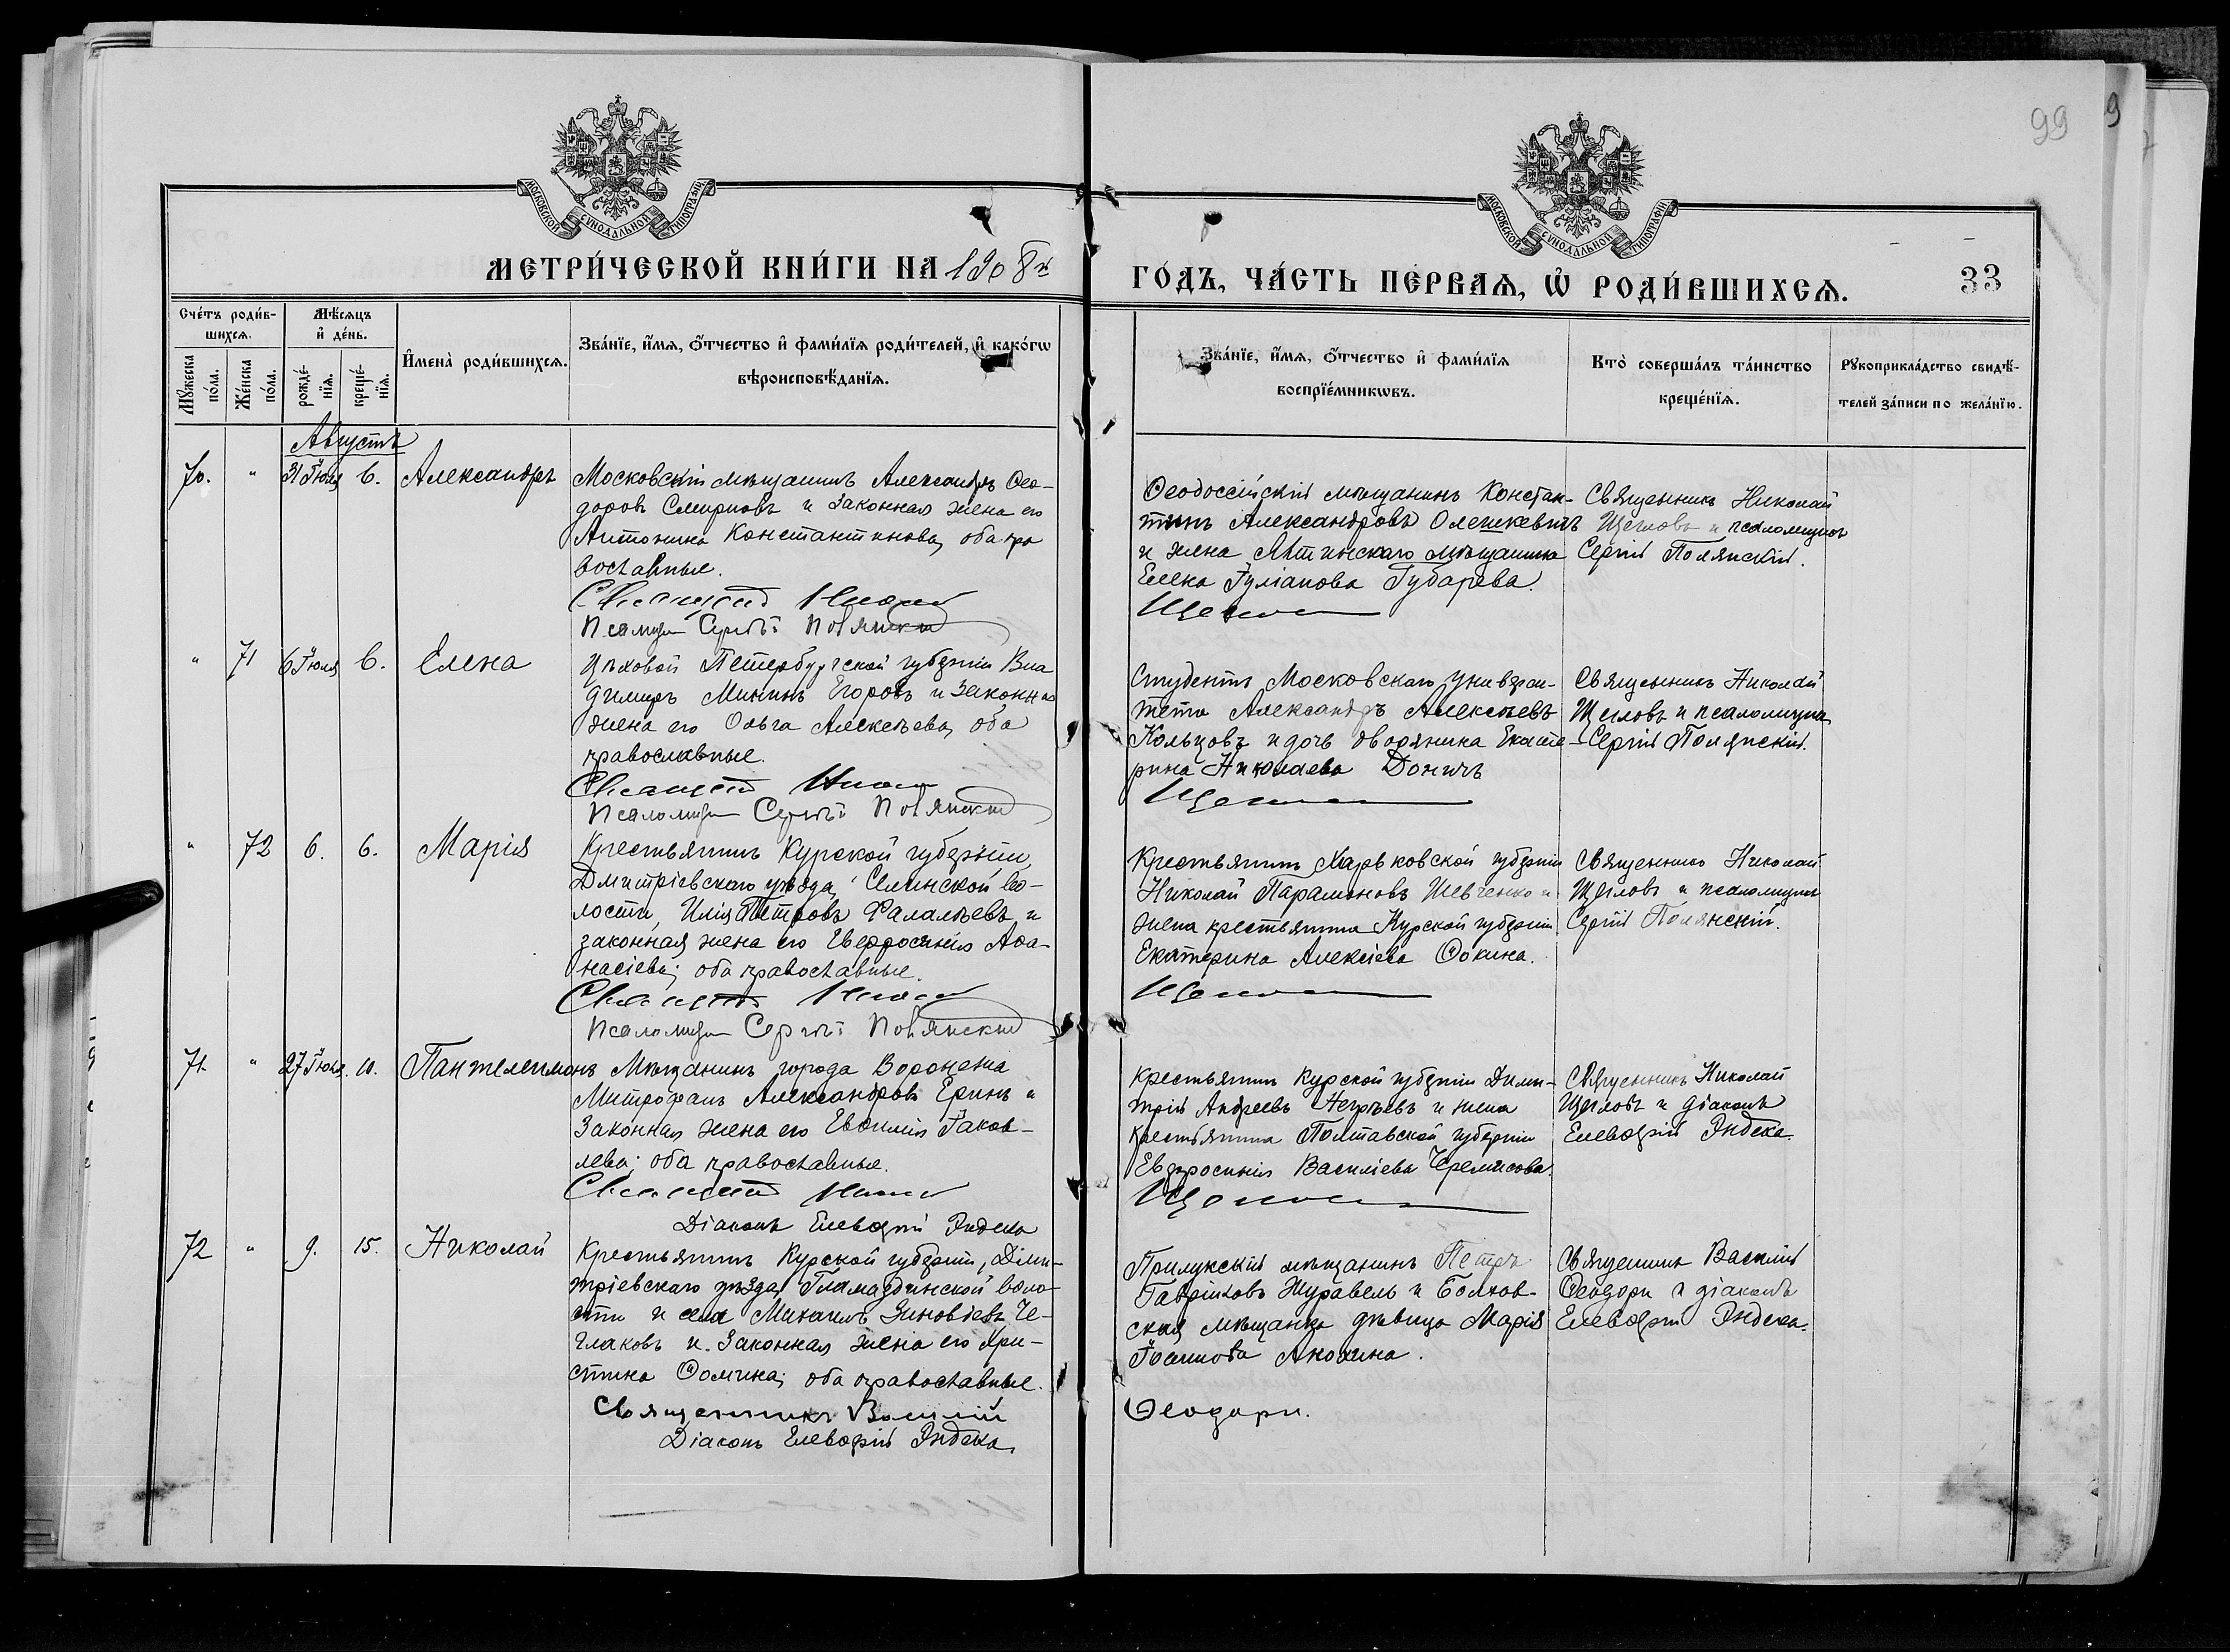 99
9
МОСКОВСКОЙ СѴНОДАЛЬНОЙ ТИПОГРАФІИ.
МОСКОВСКОЙ СѴНОДАЛЬНОЙ ТИПОГРАФІИ.
МЕТРИ́ЧЕСКОЙ КНИ́ГИ НА 1908й
ГО́ДЪ, ЧА́СТЬ ПЕРВАѦ, Ѡ҆ РОДИ́ВШИХСѦ.
33
Сче́тъ роди́в-
шихсѧ.
Мѣ́сѧцъ
и҆ де́нь.
Мꙋ́жеска по́ла.
Же́нска по́ла.
рожде́-нїѧ.
креще́-нїѧ.
И҆мена̀ роди́вшихсѧ.
Зва́нїе, и҆́мѧ, ѻ҆́тчество и҆ фами́лїѧ роди́телей, и҆ како́гѡ
вѣроисповѣ́данїѧ.
Зва́нїе, и҆́мѧ, ѻ҆́тчество и҆ фами́лїѧ
воспрїе́мникѡвъ.
Кто̀ соверша́лъ та́инство
креще́нїѧ.
Рꙋкоприкла́дство свидѣ́-
телей за́писи по жела́нїю.
Августъ
70. " 31 Іюля 6. Александръ
Московскій мѣщанинъ Александръ Ѳео-
доровъ Смирновъ и законная жена его
Антонина Константинова, оба пра
вославные.
Священникъ Николай
Псаломщ Сергѣй Полянскій
Ѳеодоссійскій мѣщанинъ Констан-
тинъ Александровъ Олешкевичъ
и жена Ялтинскаго мѣщанина
Елена Іуліанова Губарева.
Щегловъ
Священникъ Николай
Щегловъ и псаломщикъ
Сергій Полянскій.
" 71 6 Іюля 6. Елена
Цѣховой Петербургской губерніи Вла
димиръ Мининъ Егоровъ и законная
жена его Ольга Алексѣева, оба
православные.
Священникъ Николай
Псаломщ Сергѣй Полянскій
Студентъ Московскаго универси-
тета Александръ Алексѣевъ
Кольцовъ и дочь дворянина Екате-
рина Николаева Доничъ
Щегловъ
Священникъ Николай
Щегловъ и псаломщикъ
Сергій Полянскій.
" 72 6. 6. Марія
Крестьянинъ Курской губерніи,
Дмитріевскаго уѣзда, Селинской во-
лости, Илія Петровъ Фалалѣевъ и
законная жена его Евфросинія Аѳа-
насіева; оба православные.
Священникъ Николай
Псаломщ Сергѣй Полянскій
Крестьянинъ Харьковской губерніи
Николай Парамоновъ Шевченко и
жена крестьянина Курской губерніи
Екатерина Алексіева Ѳокина.
Щегловъ
Священникъ Николай
Щегловъ и псаломщикъ
Сергій Полянскій.
71. " 27 Іюля. 10. Пантелеимонъ
Мѣщанинъ города Воронежа
Митрофанъ Александровъ Еринъ и
законная жена его Евѳимія Іаков-
лева; оба православные.
Священникъ Николай
Діаконъ Елевѳерій Индека
Крестьянинъ Курской губерніи Дими-
трій Андреевъ и жена
крестьянина Полтавской губерніи
Евфросинія Василіева Черемисова.
Щегловъ
Священникъ Николай
Щегловъ и діаконъ
Елевѳерій Индека.
72 " 9. 15. Николай
Крестьянинъ Курской губерніи, Дими-
тріевскаго уѣзда, Гламаздинской воло-
сти и села Михаилъ Зиновіевъ Че-
глаковъ и законная жена его Хри-
стина Ѳомина; оба православные.
Священникъ Василій
Діаконъ Елевѳерій Индека.
Прилукскій мѣщанинъ Петръ
Гавріиловъ Журавель и Болхов-
ская мѣщанка дѣвица Марія
Іоаннова Анохина.
Ѳеодори.
Священникъ Василій
Ѳеодори и діаконъ
Елевѳерій Индека.